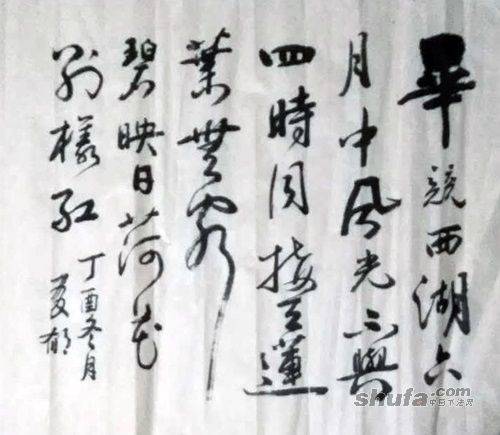 畢競西湖六
月中風光不與
四時同接天蓮
葉無窮
碧映日荷花
別樣紅
丁酉冬月
夏郁
shufa.com
中国书法网